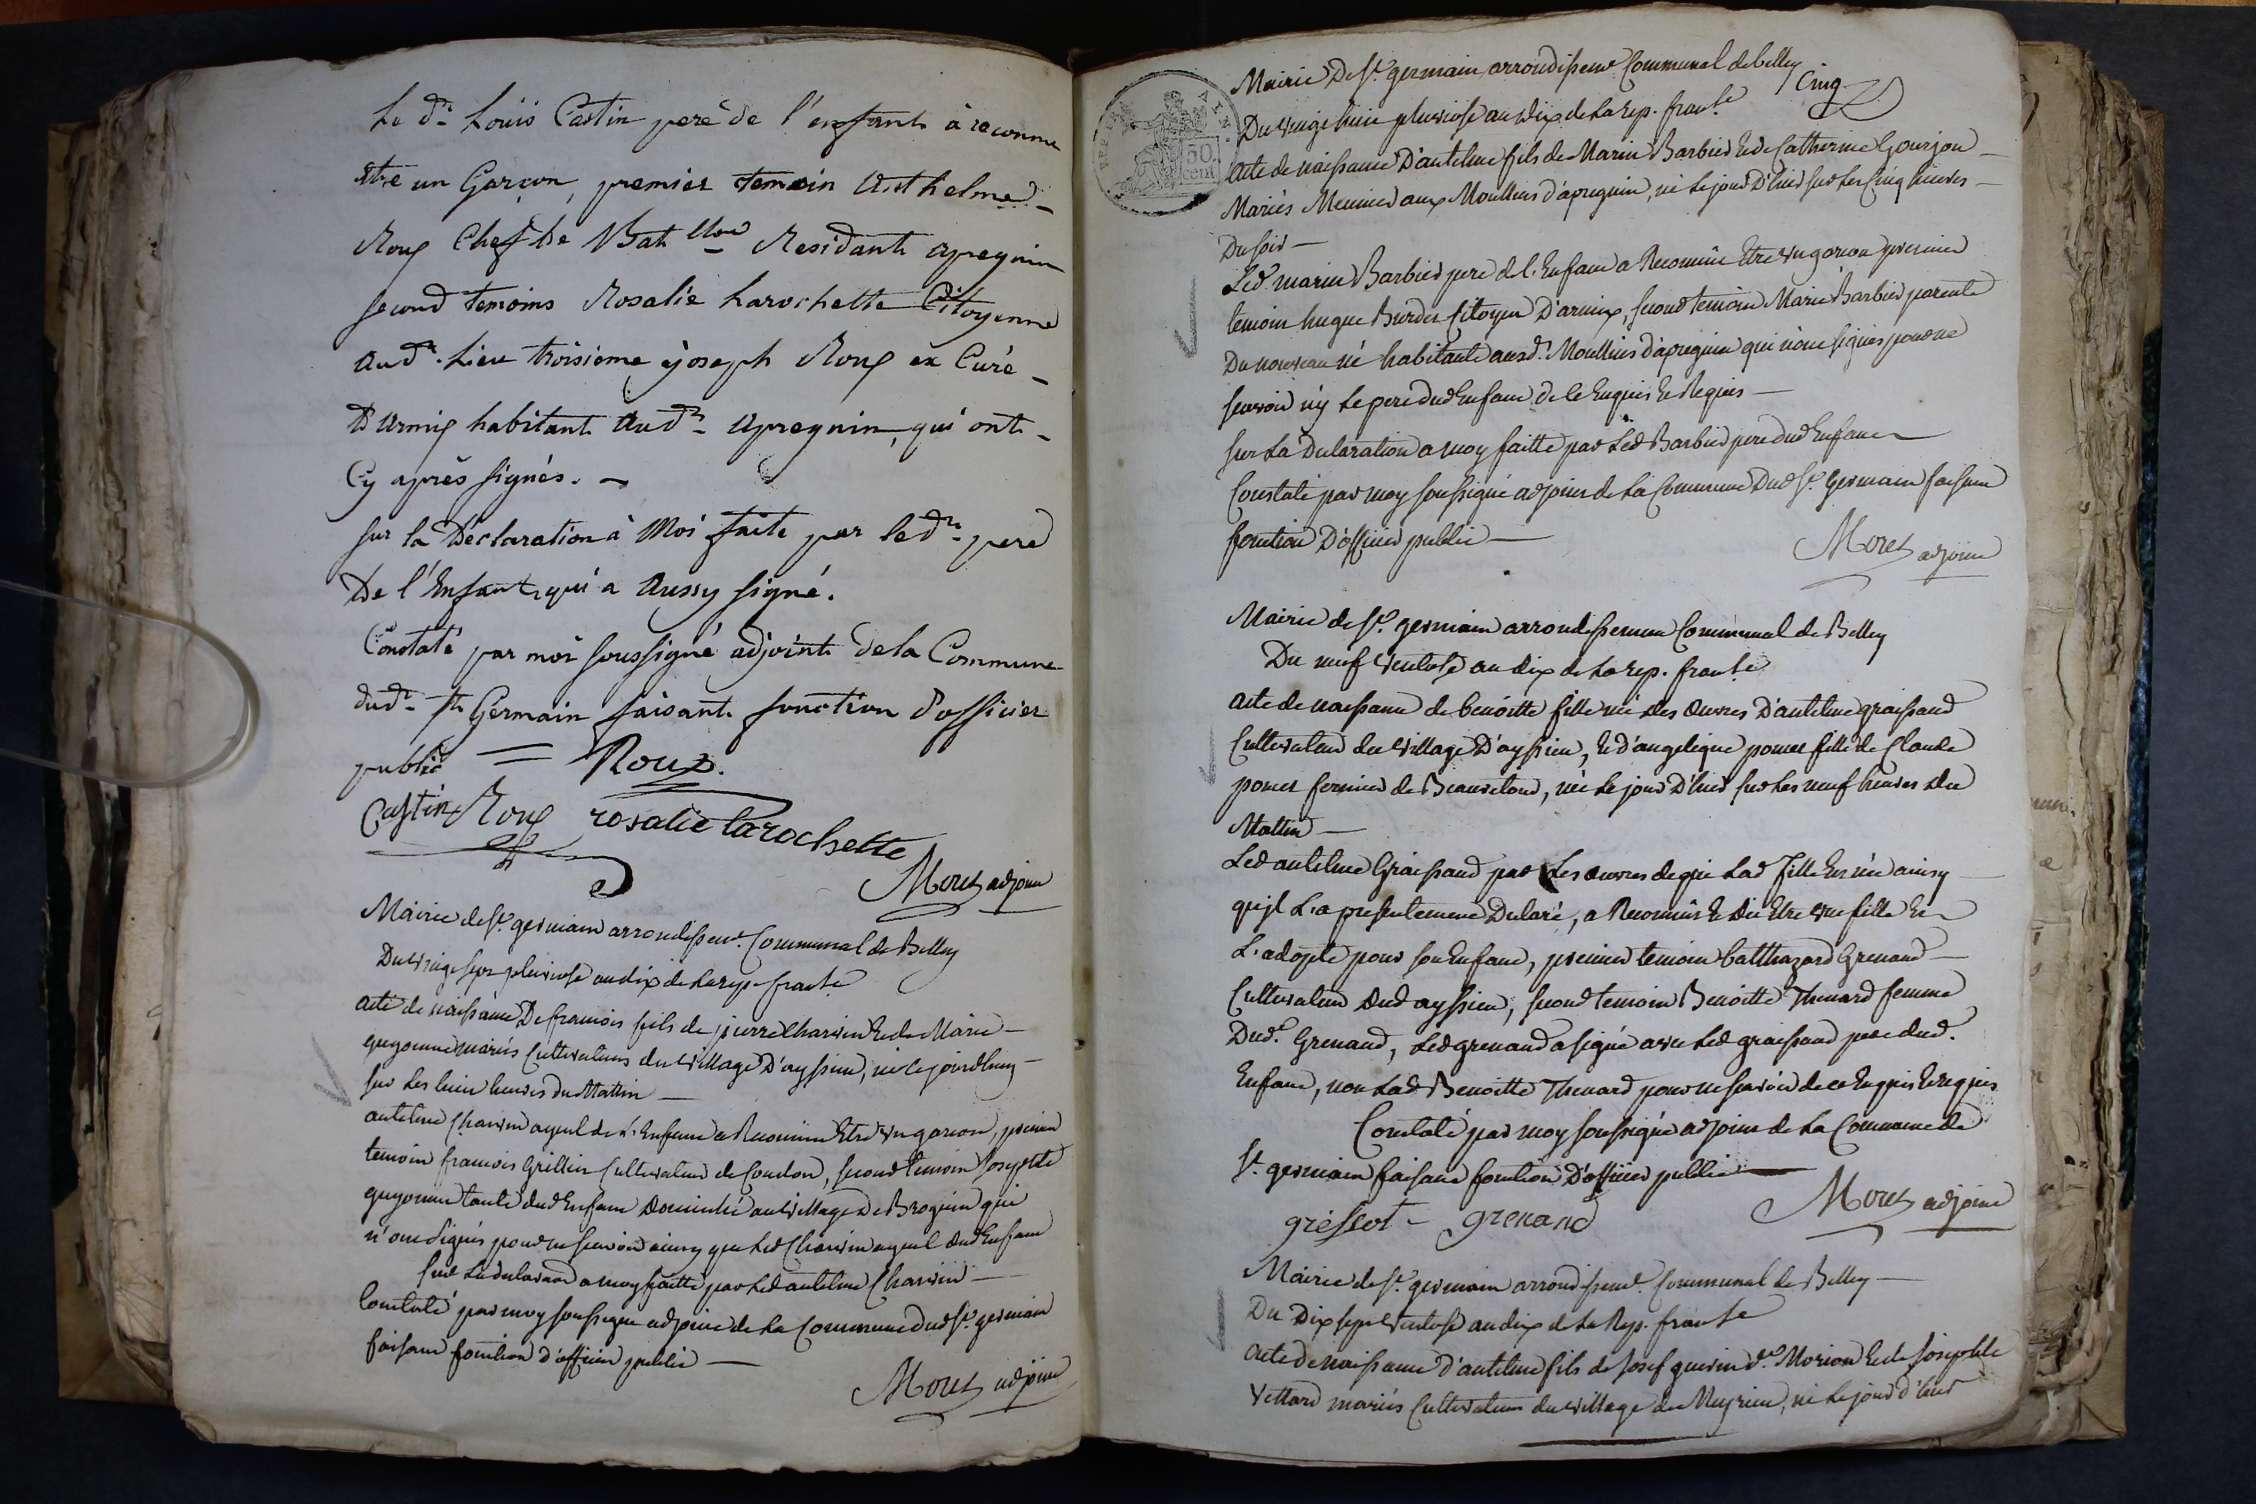 Le dt. Louis Castin pere de l'enfant à reconnu
etre un Garçon, premier temoin Anthelme
Roux Chef de Batllon Residant apregnin
second temoins Rosalie Larochette Citoyenne
audt. Lieu troisieme joseph Roux ex Curé
D'armix habitant audt. apregnin, qui ont
Cy après signés.
sur la Déclaration à Moi faite par le dt. pere
De l'Enfant qui a Aussy signé.
Constaté par moi soussigné adjoint de la Commune
dudt. St Germain faisant fonction d'officier
public = Roux.
Castin Roux rosalie larochette
Moret adjoint
Mairie de St. germain arrondissemt. Communal de Belley
Du vingt sept pluviose an dix de la rep. franse
acte de naissance De francois fils de pierre Charvin et de Marie
guyonne mariés Cultivateurs du village D'ayssieu, né le jourdhuy
sur les huit heures du Mattin
antelme Charvin ayeul de L'Enfant a Reconnu Etre un garcon, premier
temoin francois Grillin Cultivateur de Coudon, second temoin Josephte
guyonne tante dud Enfant Domiciliée au village De Brognin qui
n'ont signés pour ne scavoir ainsy que led Charvin ayeul dud Enfant
Sur La declaraon a moy faitte par led antelme Charvin
Constaté par moy soussigné adjoint de la Commune dud St. germain
faisant fonction d'officier public
Moret adjoint
Mairie De St. germain arrondissemt Communal de belley
Cinq
REP. FRA
50. cent
Du vingt huit pluviose an dix de la rep. franse
acte de naissance D'antelme fils de Marin Barbier et de Catherine Gourjon
Mariés Meunier aux Moullins d'apregnin, né le jour D'hier sur les Cinq heures
Du soir
Led. marin Barbier pere de l'Enfant a Reconnu Etre un garcon premier
temoin hugue Burdet Citoyen D'armix, second temoin Marie Barbier parente
Du nouveau né habitante ausd. Moullins d'apregnin qui n'ont signés pour ne
scavoir n'y le pere dud Enfant de ce Enquis et Requis
sur La Declaration a moy faitte par Led Barbier pere dud Enfant
Constaté par moy soussigné adjoint de la Commune Dud St. Germain faisant
fonction D'officier public
Moret adjoint
Mairie de St. germain arrondissement Communal de Belley
Du neuf ventose an dix de la rep. franse
acte de naissance de benoitte fille née des œuvres D'antelme graissard
Cultivateur du village D'ayssieu, et d'angelique ponet fille de Claude
ponet fermier de Beauretour, née le jour D'hier sur les neuf heures du
Mattin
Led antelme Graissard par Les œuvres de qui Lad fille est née ainsy
qu'il L'a presentement Declaré, a Reconnu et dit Etre une fille et
L'adopte pour son Enfant, premier temoin balthazard Grenard
Cultivateur dud ayssieu, second temoin Benoitte Thenard femme
Dud. Grenard, Led grenard a signé avec led graissard pere dud.
Enfant, non Lad Benoitte Thenard pour ne scavoir de ce Enquis et requis
Constaté par moy soussigné adjoint de la Commune de
St. germain faisant fonction D'officier public
Moret adjoint
gréssot - grenand
Mairie de St. germain arrondissemt. Communal de Belley
Du Dix sept ventose an dix de la Rep. franse
acte de naissance d'antelme fils de Josef guerin dt. Morion et de Josephte
vettard mariés Cultivateurs du village de Meyrieu, né le jour d'hier